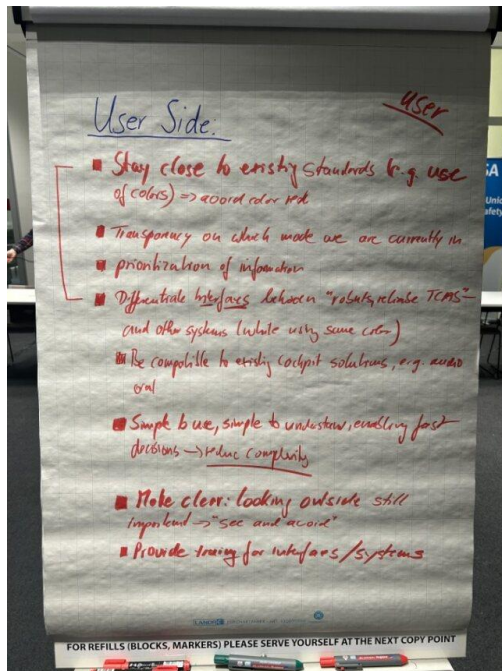 User Side:
User
Stay close to existing standards (e.g. use
of colors) => avoid color red
Transparency on which mode we are currently in
prioritization of information
Differentiate Interfaces between "robust, reliable TCAS"
and other systems (while using same color)
Be compatible to existing cockpit solutions, e.g. audio
oral
Simple to use, simple to understand, enabling fast
decisions → reduce complexity
Make clear: looking outside still
important → "see and avoid"
Provide training for interfaces/systems
FOR REFILLS (BLOCKS, MARKERS) PLEASE SERVE YOURSELF AT THE NEXT COPY POINT